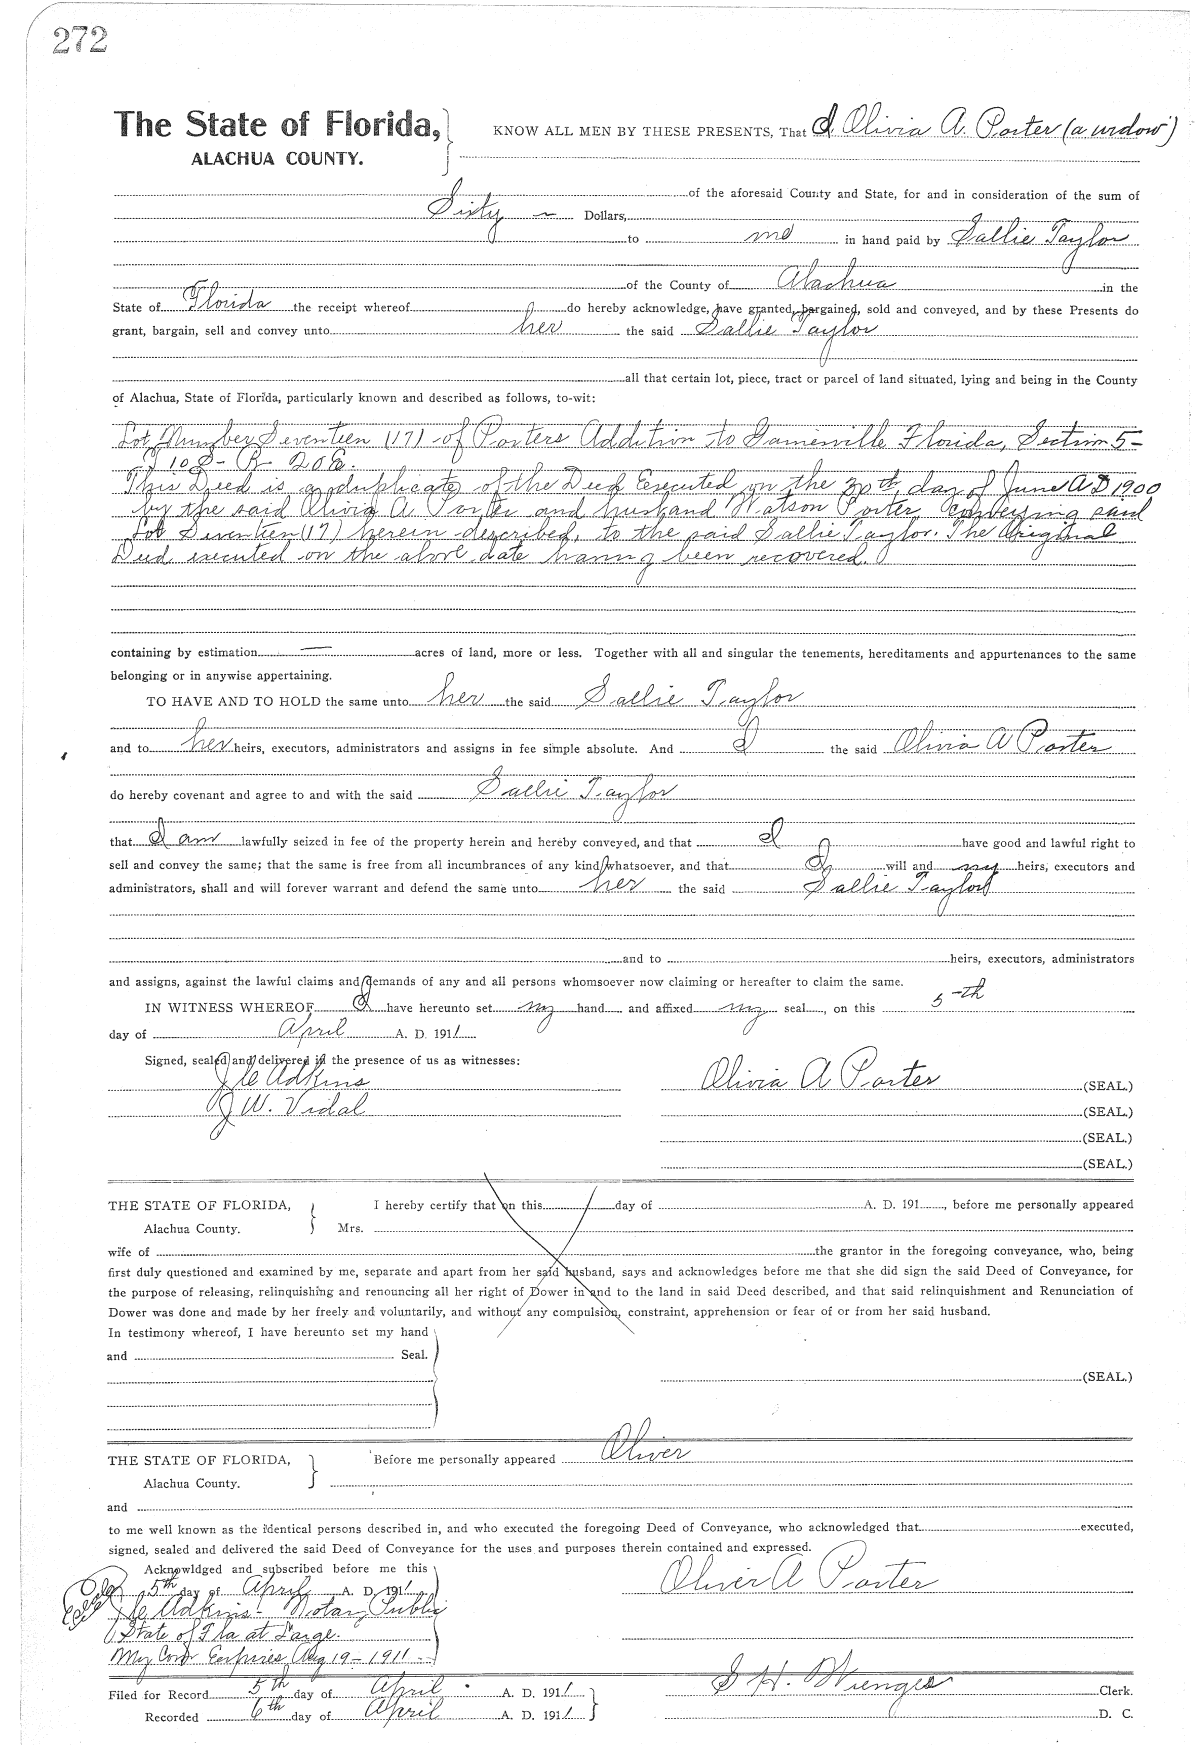 272
The State of Florida,
ALACHUA COUNTY.
KNOW ALL MEN BY THESE PRESENTS, That I Olivia A. Porter (a widow)
of the aforesaid County and State, for and in consideration of the sum of
Sixty Dollars,
to me in hand paid by Sallie Taylor
of the County of Alachua in the
State of Florida the receipt whereof do hereby acknowledge, have granted, bargained, sold and conveyed, and by these Presents do
grant, bargain, sell and convey unto her the said Sallie Taylor
all that certain lot, piece, tract or parcel of land situated, lying and being in the County
of Alachua, State of Florida, particularly known and described as follows, to-wit:
Lot Number Seventeen (17) of Porters Addition to Gainesville Florida, Section 5-
T 10 S- R- 20 E.
This Deed is a duplicate of the Deed Executed on the 30th day of June A D 1900
by the said Olivia A Porter and husband Watson Porter conveying said
Lot Seventeen (17) herein described, to the said Sallie Taylor. The Original
Deed executed on the above date having been recovered.
containing by estimation — acres of land, more or less. Together with all and singular the tenements, hereditaments and appurtenances to the same
belonging or in anywise appertaining.
TO HAVE AND TO HOLD the same unto her the said Sallie Taylor
and to her heirs, executors, administrators and assigns in fee simple absolute. And I the said Olivia A Porter
do hereby covenant and agree to and with the said Sallie Taylor
that I am lawfully seized in fee of the property herein and hereby conveyed, and that I have good and lawful right to
sell and convey the same; that the same is free from all incumbrances of any kind whatsoever, and that I will and my heirs, executors and
administrators, shall and will forever warrant and defend the same unto her the said Sallie Taylor
and to heirs, executors, administrators
and assigns, against the lawful claims and demands of any and all persons whomsoever now claiming or hereafter to claim the same.
IN WITNESS WHEREOF I have hereunto set my hand and affixed my seal, on this 5-th
day of April A. D. 1911
Signed, sealed and delivered in the presence of us as witnesses:
J C Adkins Olivia A Porter (SEAL.)
J W. Vidal (SEAL.)
(SEAL.)
(SEAL.)
THE STATE OF FLORIDA, I hereby certify that on this day of A. D. 191 , before me personally appeared
Alachua County. Mrs.
wife of the grantor in the foregoing conveyance, who, being
first duly questioned and examined by me, separate and apart from her said husband, says and acknowledges before me that she did sign the said Deed of Conveyance, for
the purpose of releasing, relinquishing and renouncing all her right of Dower in and to the land in said Deed described, and that said relinquishment and Renunciation of
Dower was done and made by her freely and voluntarily, and without any compulsion, constraint, apprehension or fear of or from her said husband.
In testimony whereof, I have hereunto set my hand
and Seal.
(SEAL.)
THE STATE OF FLORIDA, Before me personally appeared Oliver
Alachua County.
and
to me well known as the identical persons described in, and who executed the foregoing Deed of Conveyance, who acknowledged that executed,
signed, sealed and delivered the said Deed of Conveyance for the uses and purposes therein contained and expressed.
Acknwldged and subscribed before me this
5th day of April A. D. 1911 Oliver A Porter
J C Adkins- Notary Public
State of Fla at Large.
My Com Expires Aug 19- 1911
Filed for Record 5th day of April A. D. 1911 S H. Wienges Clerk.
Recorded 6th day of April A. D. 1911 D. C.